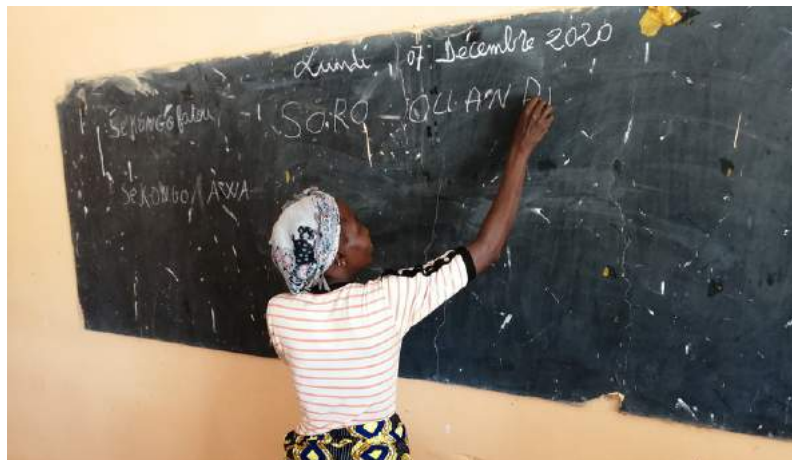 Lundi, 07 Décembre 2020
Sekongo fatou
SORO - OUAN
SeKONGO AWA